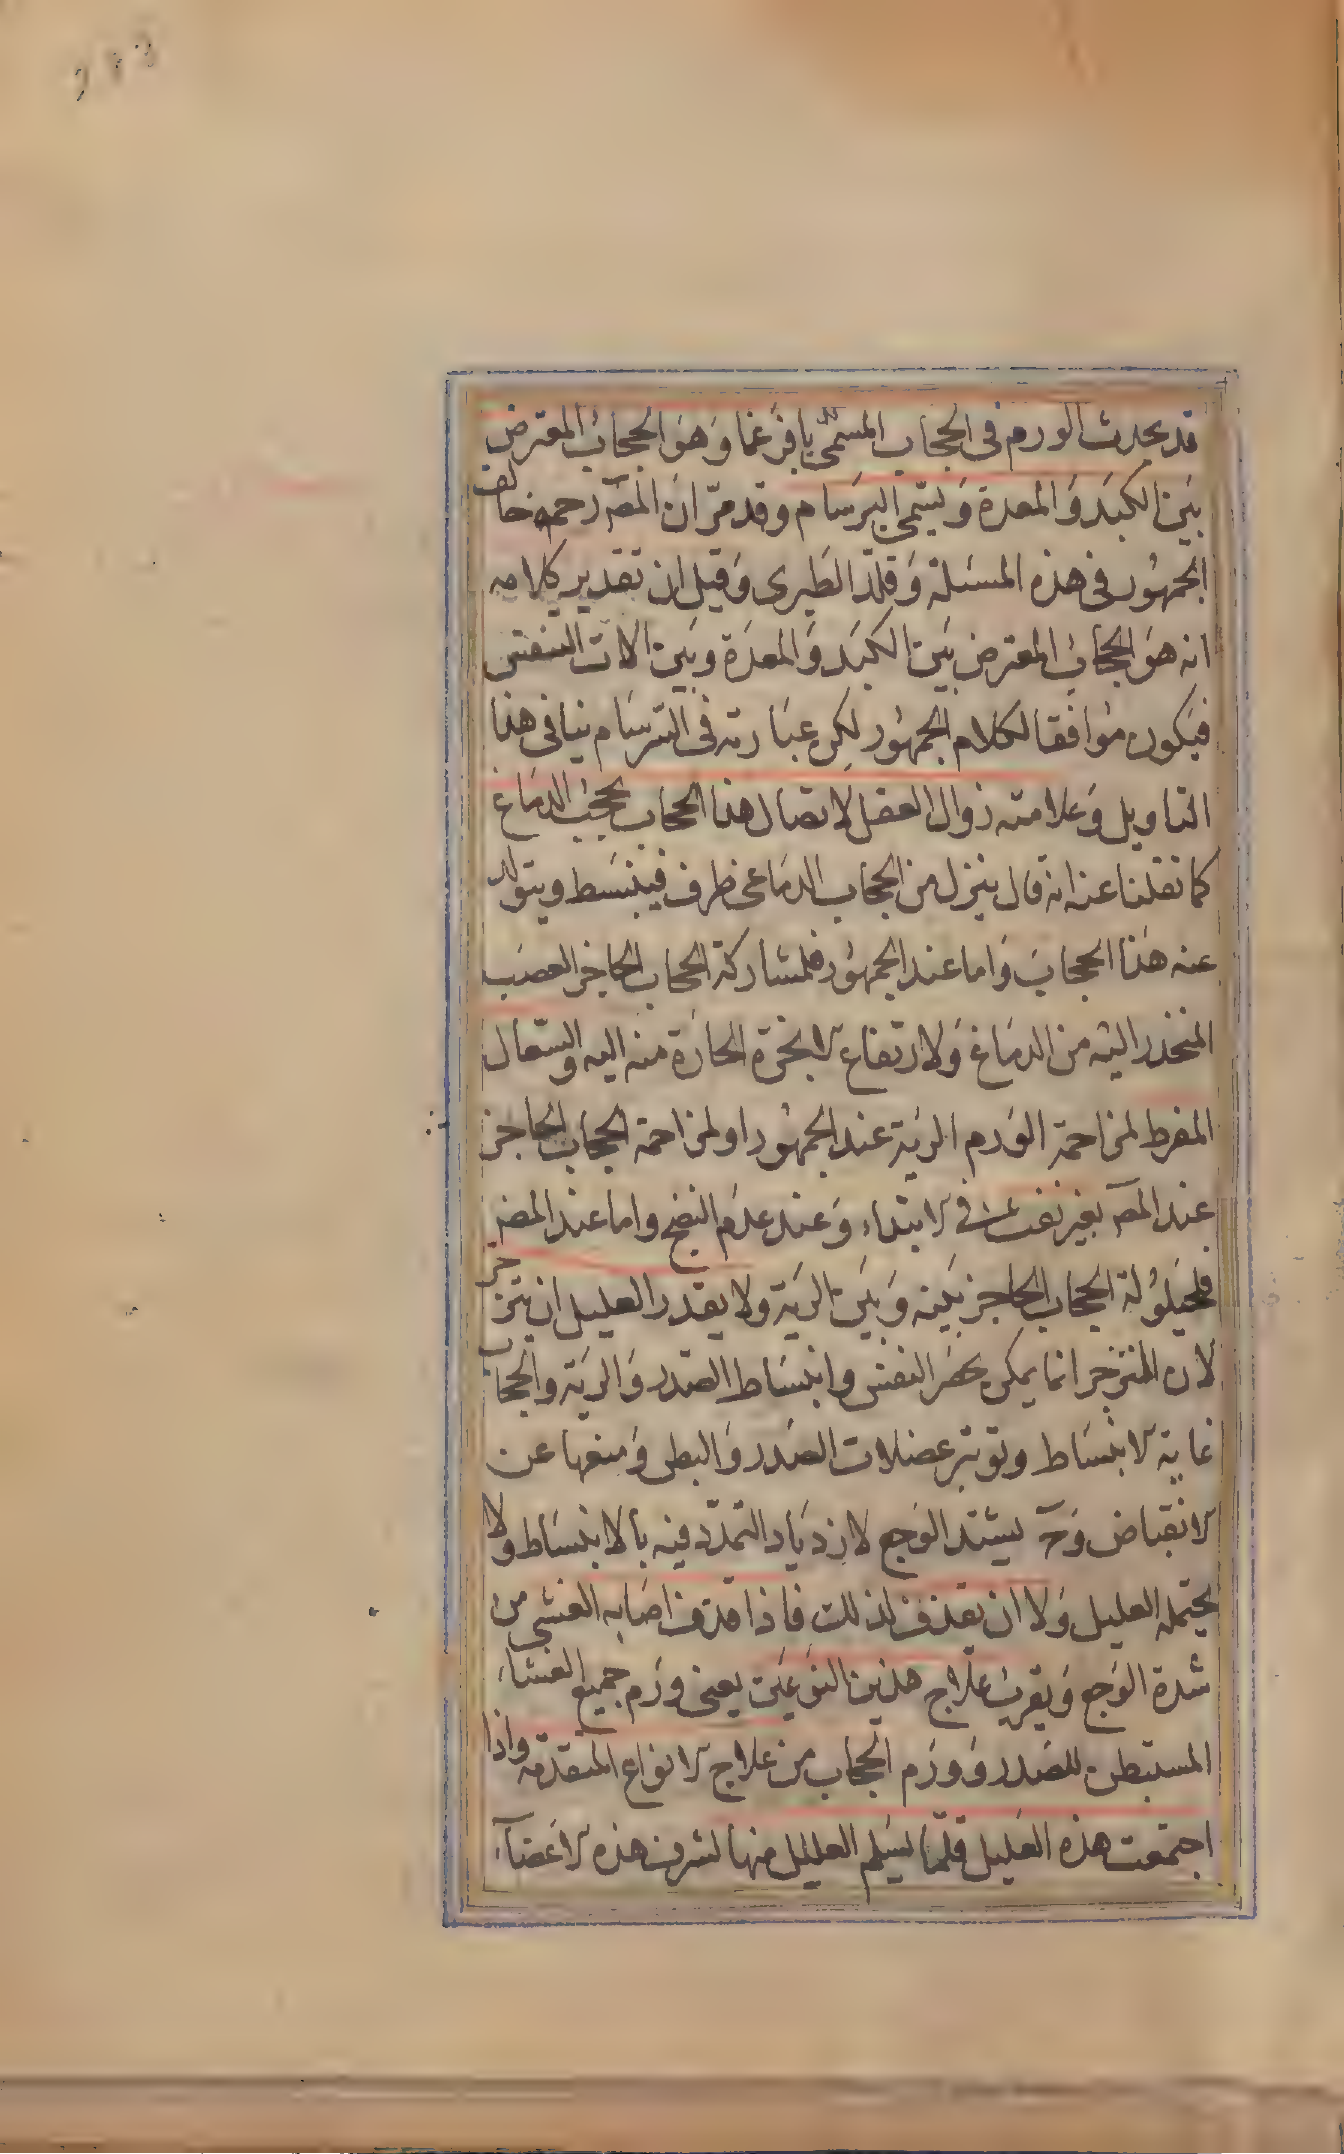 قد يحدث الورم فى الحجاب المسمى ديافرغما وَهوَ الحجابُ المعترض
بَينَ الكبَد وَالمعدة وَيسَمى البرسَام وقد مرّ ان المصَ رحمه خالف
الجمهُور فى هذه المسئلة وَقلّد الطبرى وَقيل ان تقدير كلامه
انه هوَ الحجابُ المعترض بَينَ الكبَد وَالمعدَة وبَينَ الات التنفس
فيَكون موُافقا لكلام الجمهُور لكِن عبَارته فى السرسَام ينافى هذا
التاويل وَعلامته زوال العقل لاتصال هذا الحجاب بحجب الدمَاغ
كما نقلنا عنه انه قال ينزل من الحجاب الدمَاغى طرف فينبسَط ويتولد
عنه هَذا الحجابَ وَاما عند الجمهُور فلمشاركة الحجاب الحاجز العصَب
المنحدر اليْه من الدمَاغ وَلارتفاع الابخرة الحارَة منه اليه والسّعال
المفرط لمزاحمة الوَرم الرئة عند الجمهُور او لمزاحمة الحجاب الحاجز
عند المصَ بغير نفث فى الابتداء وَعند عدَم النضج واما عند المص
فلحيَلوُلة الحجاب الحاجز بَينه وَبَينَ الرئة ولا يقدر العليل ان يتزحر
لان التزحر انما يمكن بحصَر النفسَ وانبسَاط الصَدر وَالرئة والحجاب
غاية الانبسَاط وتوتر عضلات الصَدر وَالبطن وَمنعها عن
الانقباض وَحَ يشتد الوَجع لازديَاد التمدّد فيه بالانبسَاط ولا
يحتمله العليل وَلا ان يقذف لذلك فاذا قذف اصَابه الغشى من
شدة الوَجع وَيقربُ علاج هذين النوَعَين يعنى ورَم جميع الغشاء
المستبطن للصَدر وَورَم الحجاب من علاج الانواع المتقدمة واذا
اجتمعت هذه العَليل قلّما يَسلم العليل منها لشرف هذه الاعَضآء